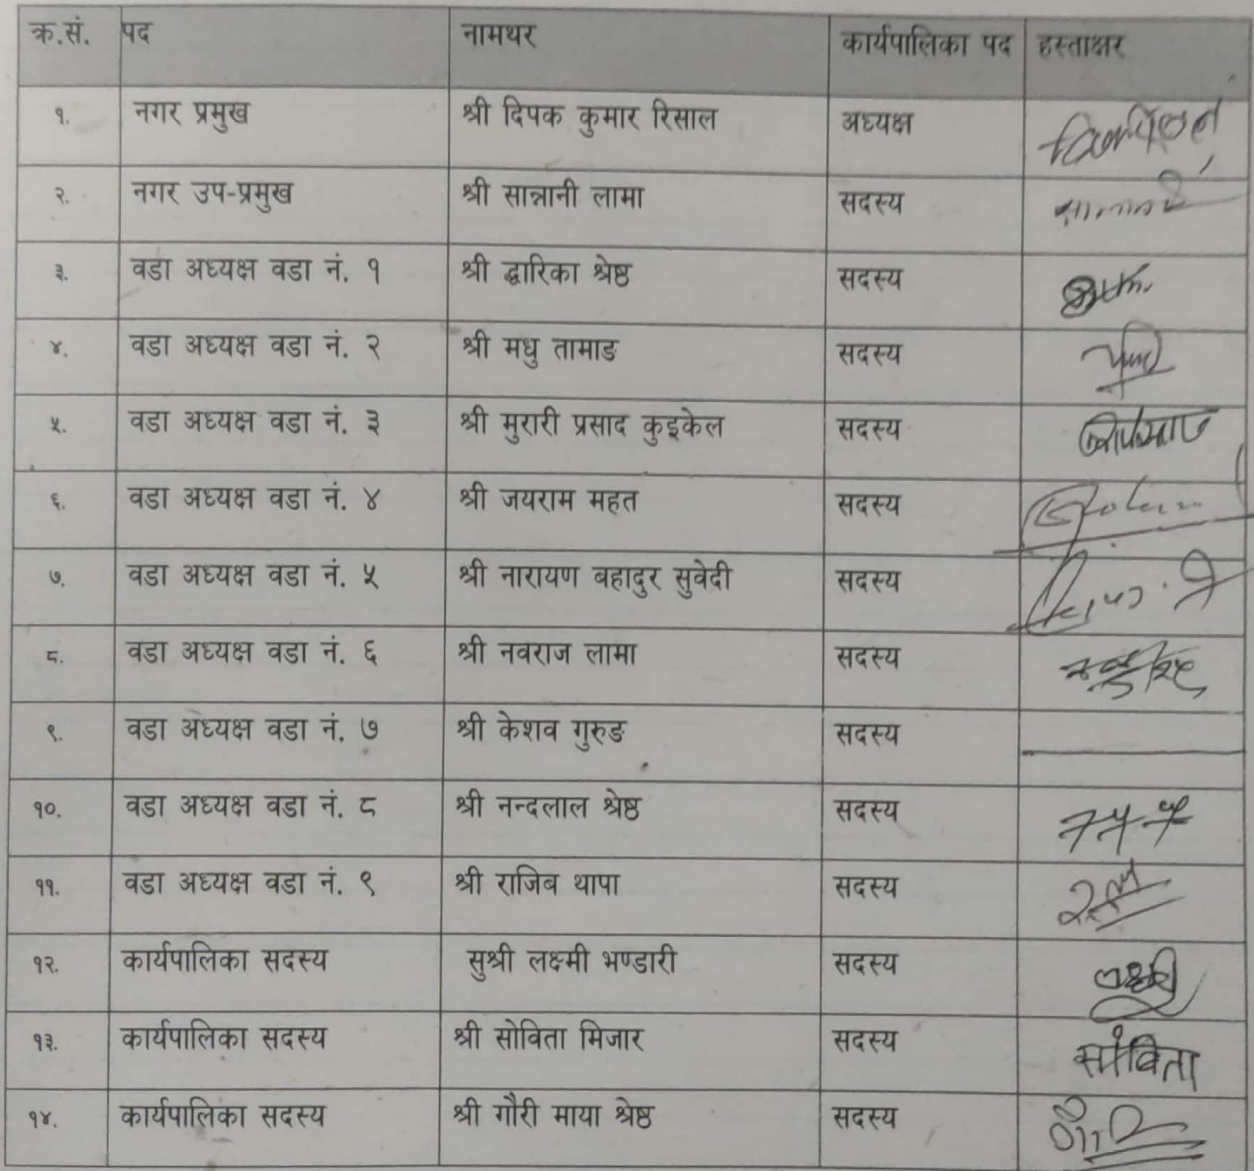 क्र.सं. पद नामथर कार्यपालिका पद हस्ताक्षर
१. नगर प्रमुख श्री दिपक कुमार रिसाल अध्यक्ष
२. नगर उप-प्रमुख श्री सान्नानी लामा सदस्य
३. वडा अध्यक्ष वडा नं. १ श्री द्वारिका श्रेष्ठ सदस्य
४. वडा अध्यक्ष वडा नं. २ श्री मधु तामाङ सदस्य
५. वडा अध्यक्ष वडा नं. ३ श्री मुरारी प्रसाद कुइकेल सदस्य
६. वडा अध्यक्ष वडा नं. ४ श्री जयराम महत सदस्य
७. वडा अध्यक्ष वडा नं. ५ श्री नारायण बहादुर सुवेदी सदस्य
८. वडा अध्यक्ष वडा नं. ६ श्री नवराज लामा सदस्य
९. वडा अध्यक्ष वडा नं. ७ श्री केशव गुरुङ सदस्य
१०. वडा अध्यक्ष वडा नं. ८ श्री नन्दलाल श्रेष्ठ सदस्य
११. वडा अध्यक्ष वडा नं. ९ श्री राजिब थापा सदस्य
१२. कार्यपालिका सदस्य सुश्री लक्ष्मी भण्डारी सदस्य
१३. कार्यपालिका सदस्य श्री सोविता मिजार सदस्य सोविता
१४. कार्यपालिका सदस्य श्री गौरी माया श्रेष्ठ सदस्य